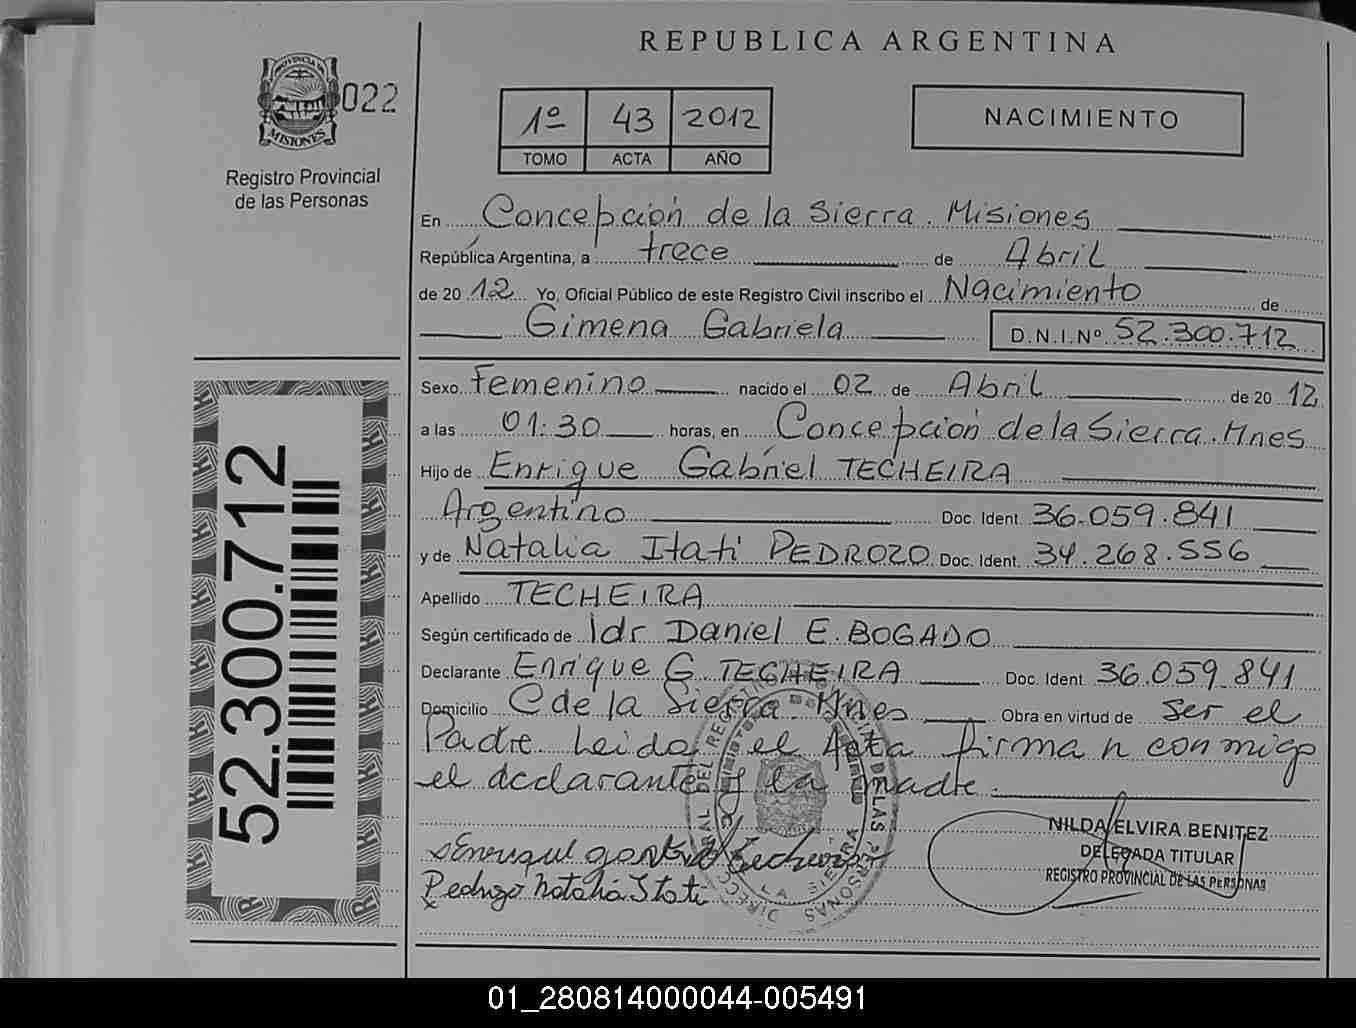 REPUBLICA ARGENTINA
PROVINCIA DE
MISIONES
022
Registro Provincial
de las Personas
1º 43 2012
TOMO ACTA AÑO
NACIMIENTO
En Concepción de la Sierra. Misiones
República Argentina, a trece de Abril
de 2012 Yo, Oficial Público de este Registro Civil inscribo el Nacimiento de
Gimena Gabriela D.N.I.Nº 52.300.712
Sexo Femenino nacido el 02 de Abril de 2012
a las 01:30 horas, en Concepción de la Sierra. Mnes
Hijo de Enrique Gabriel TECHEIRA
Argentino Doc. Ident. 36.059.841
y de Natalia Itati PEDROZO Doc. Ident. 34.268.556
Apellido TECHEIRA
Según certificado de Idr Daniel E. BOGADO
Declarante Enrique G. TECHEIRA Doc. Ident 36.059.841
Domicilio C de la Sierra. Mnes Obra en virtud de ser el
Padre. Leida el Acta firman conmigo
el declarante y la madre.
NILDA ELVIRA BENITEZ
DELEGADA TITULAR
REGISTRO PROVINCIAL DE LAS PERSONAS
Pedrozo Natalia Itati
52.300.712
01_280814000044-005491